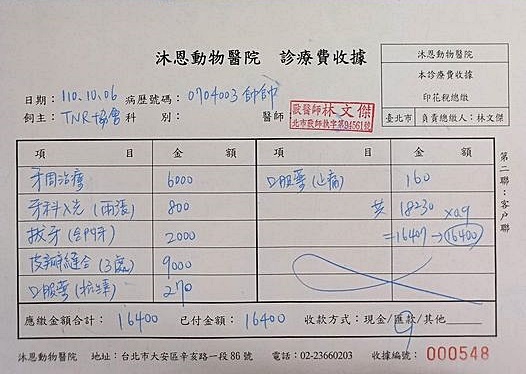 沐恩動物醫院 診療費收據
沐恩動物醫院
本診療費收據
印花稅總繳
臺北市 負責總繳人：林文傑
日期：110.10.06 病歷號碼：0704003 帥帥
飼主：TNR協會 科 別： 醫師
獸醫師林文傑
北市獸師執字第94561號
項 目 金 額 項 目 金 額
牙周治療 6000 口服藥(止痛) 160
牙科X光(兩張) 800 共 18230 x0.9
拔牙(含門牙) 2000 =16407→16400
皮瓣縫合(3處) 9000
口服藥(抗生素) 270
應繳金額合計：16400 已付金額：16400 收款方式：現金/匯款/其他
第二聯：客戶聯
沐恩動物醫院 地址：台北市大安區辛亥路一段86號 電話：02-23660203 收據編號：000548